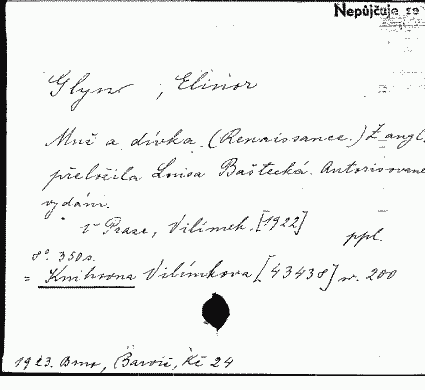 Nepůjčuje se
Glyn, Elinor
Muž a dívka (Renaissance.) Z angl.
přeložila Louisa Baštecká. Autorisované
vydání.
V Praze, Vilímek. [1922]
ppl.
8°. 350 s.
= Knihovna Vilímkova [4343 8] sv. 200
1923. Brno, Barvič, Kč 24